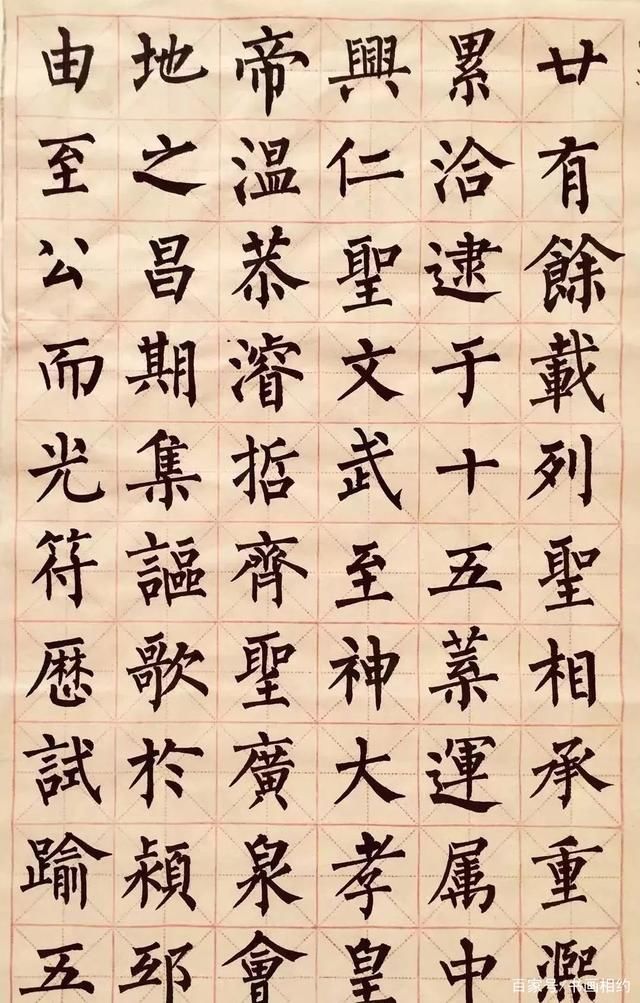 廿有餘載列聖相承重熙
累洽逮于十五葉運属中
興仁聖文武至神大孝皇
帝温恭濬哲齊聖廣泉會
地之昌期集謳歌於潁邸
由至公而光符歴試踰五
百家号/书画相约